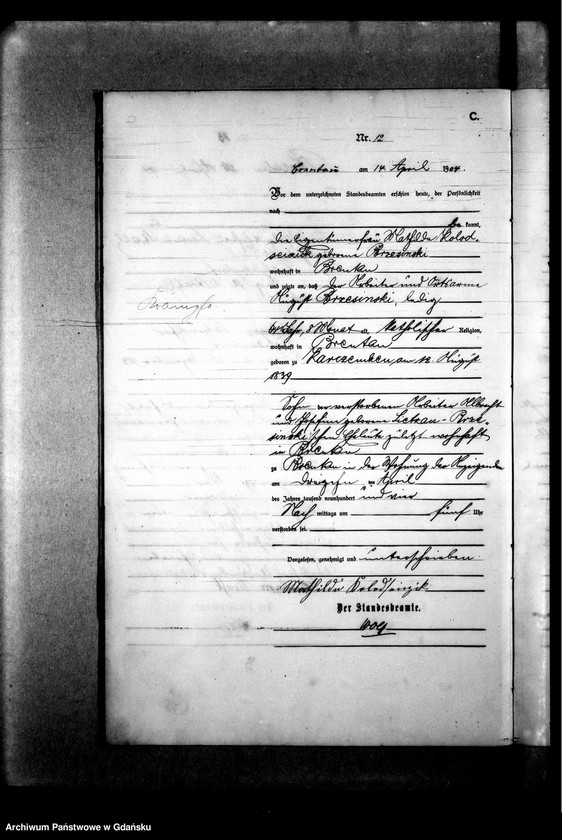 C.
Nr. 12
Brentau am 14 April 1904.
Vor dem unterzeichneten Standesbeamten erschien heute, der Persönlichkeit
nach
be kannt,
die Eigentümerfrau Mathilde Kolod-
geborene Brzesinski
wohnhaft in Brentau
und zeigte an, daß der Arbeiter und Ortsarme
August Brzesinski, ledig
64 Jahr, 8 Monat alt, katholischer Religion,
wohnhaft in Brentau
geboren zu am 12. August
1839
Sohn der verstorbenen Arbeiter Albrecht
und geborene - Brze-
sinski'schen Eheleute zuletzt wohnhaft
in Brentau
zu Brentau in der Wohnung der Anzeigenden
am dreizehn ten April
des Jahres tausend neunhundert und vier
Nach mittags um fünf Uhr
verstorben sei.
Vorgelesen, genehmigt und unterschrieben.
Mathilde
Der Standesbeamte.
Archiwum Państwowe w Gdańsku